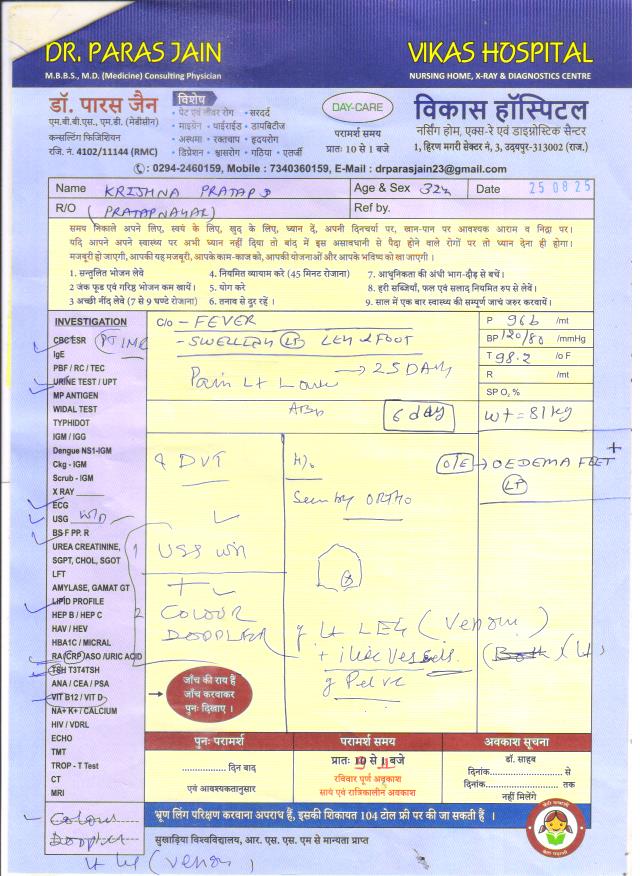 DR. PARAS JAIN
M.B.B.S., M.D. (Medicine) Consulting Physician
VIKAS HOSPITAL
NURSING HOME, X-RAY & DIAGNOSTICS CENTRE
डॉ. पारस जैन
एम.बी.बी.एस., एम.डी. (मेडीसीन)
कन्सल्टिंग फिजिशियन
रजि. नं. 4102/11144 (RMC)
विशेष
• पेट एवं लीवर रोग • सरदर्द
• माइग्रेन • थाईराईड • डायबिटीज
• अस्थमा • रक्तचाप • हृदयरोग
• डिप्रेशन • श्वासरोग • गठिया • एलर्जी
DAY-CARE
परामर्श समय
प्रातः 10 से 1 बजे
विकास हॉस्पिटल
नर्सिंग होम, एक्स-रे एवं डाइग्नोस्टिक सेन्टर
1, हिरण मगरी सेक्टर नं. 3, उदयपुर-313002 (राज.)
: 0294-2460159, Mobile : 7340360159, E-Mail : drparasjain23@gmail.com
Name KRISHNA PRATAP Age & Sex 32 Date 25 08 25
R/O (PRATAPNAGAR) Ref by.
समय निकाले अपने लिए, स्वयं के लिए, खुद के लिए, ध्यान दें, अपनी दिनचर्या पर, खान-पान पर आवश्यक आराम व निद्रा पर।
यदि आपने अपने स्वास्थ्य पर अभी ध्यान नहीं दिया तो बाद में इस असावधानी से पैदा होने वाले रोगों पर तो ध्यान देना ही होगा।
मजबूरी हो जाएगी, आपकी यह मजबूरी, आपके काम-काज को, आपकी योजनाओं और आपके भविष्य को भी प्रभावित करेगी।
1. सन्तुलित भोजन लेवे 4. नियमित व्यायाम करे (45 मिनट रोजाना) 7. आधुनिकता की अंधी भाग-दौड़ से बचें।
2. जंक फूड एवं गरिष्ठ भोजन कम खायें। 5. योग करे 8. हरी सब्जियाँ, फल एवं सलाद नियमित रुप से लेवें।
3 अच्छी नींद लेवे (7 से 9 घण्टे रोजाना) 6. तनाव से दूर रहें । 9. साल में एक बार स्वास्थ्य की सम्पूर्ण जाचं जरुर करवायें।
INVESTIGATION
CBC ESR PT INR
IgE
PBF / RC / TEC
URINE TEST / UPT
MP ANTIGEN
WIDAL TEST
TYPHIDOT
IGM / IGG
Dengue NS1-IGM
Ckg - IGM
Scrub - IGM
X RAY
ECG
USG
BS F PP. R
UREA CREATININE,
SGPT, CHOL, SGOT
LFT
AMYLASE, GAMAT GT
LIPID PROFILE
HEP B / HEP C
HAV / HEV
HBA1C / MICRAL
RA/CRP/ASO /URIC ACID
TSH T3T4TSH
ANA / CEA / PSA
VIT B12 / VIT D
NA+ K+ / CALCIUM
HIV / VDRL
ECHO
TMT
TROP - T Test
CT
MRI
Colour
Doppler
C/o - FEVER
- SWELLING LT LEG & FOOT
Pain Lt → 25 DAYS
6 day
P 96 /mt
BP 120/80 /mmHg
T 98.2 /o F
R /mt
SP O, %
wt = 81 kg
O/E → OEDEMA FEET +
LT
DVT
H/o
Seen by ORTHO
1 USG
+
2 COLOUR
DOPPLER
Lt LEG (Venous)
+ iliac Vessels
जाँच की राय हैं
जाँच करवाकर
पुनः दिखाए ।
पुनः परामर्श
............... दिन बाद
एवं आवश्यकतानुसार
परामर्श समय
प्रातः 10 से 1 बजे
रविवार पूर्ण अवकाश
सायं एवं रात्रिकालीन अवकाश
अवकाश सूचना
डॉ. साहब
दिनांक.................... से
दिनांक.................... तक
नहीं मिलेंगे
भ्रूण लिंग परिक्षण करवाना अपराध हैं, इसकी शिकायत 104 टोल फ्री पर की जा सकती हैं ।
सुखाड़िया विश्वविद्यालय, आर. एस. एस. एम से मान्यता प्राप्त